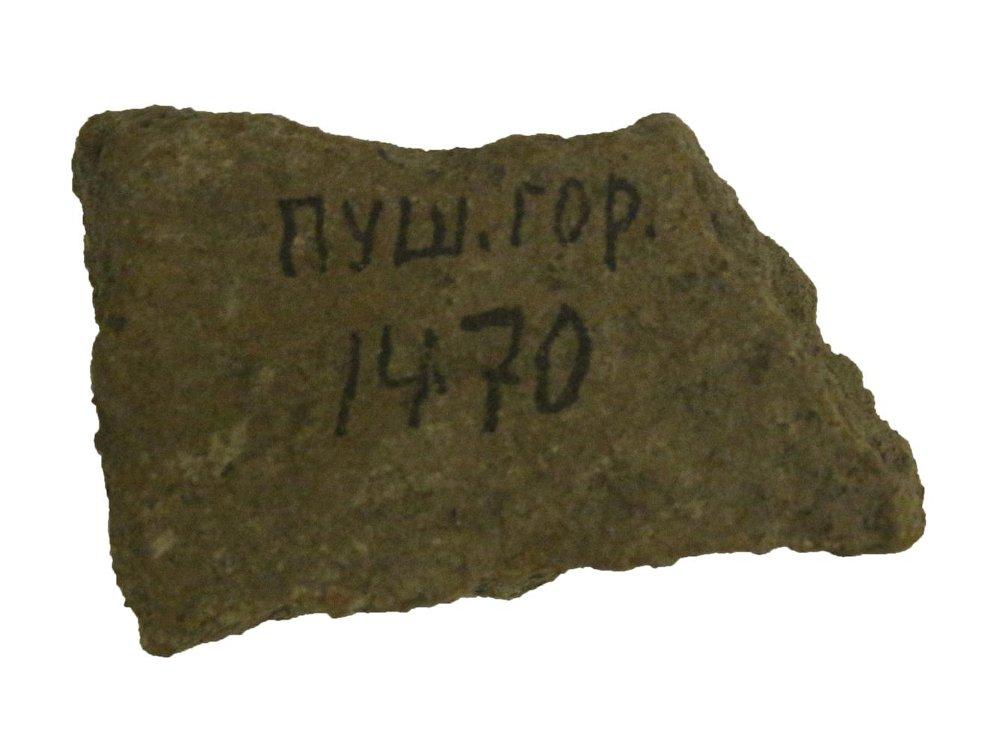 ПУШ.ГОР.
1470